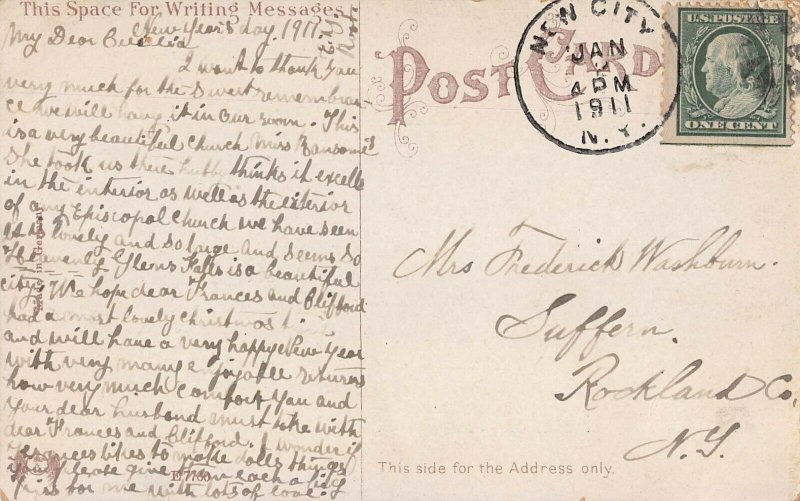 This Space For Writing Messages
New Year's day. 1911.
N.Y.
My Dear Cecelia
I want to thank you
very much for the sweet remembran
ce we will hang it in our room. This
is a very beautiful church Miss Ransom's
She took us there hubby thinks it excells
in the interior as well as the exterior
of any Episcopal Church we have seen
it is lovely and so large and seems so
Heavenly Glens Falls is a beautiful
city. We hope dear Frances and Clifford
had a most lovely christmas time
and will have a very happy New Year
with very many enjoyable returns
how very much comfort you and
your dear husband must take with
dear Frances and Clifford. I wonder if
Frances likes to make dolls things
please give them each a big
kiss for me with lots of love.
Made in Germany
E7730
Post Card
NEW CITY
JAN
2
4 PM
1911
N.Y.
U.S. POSTAGE
ONE CENT
Mrs Frederick Washburn.
Suffern.
Rockland Co.
N.Y.
This side for the Address only.